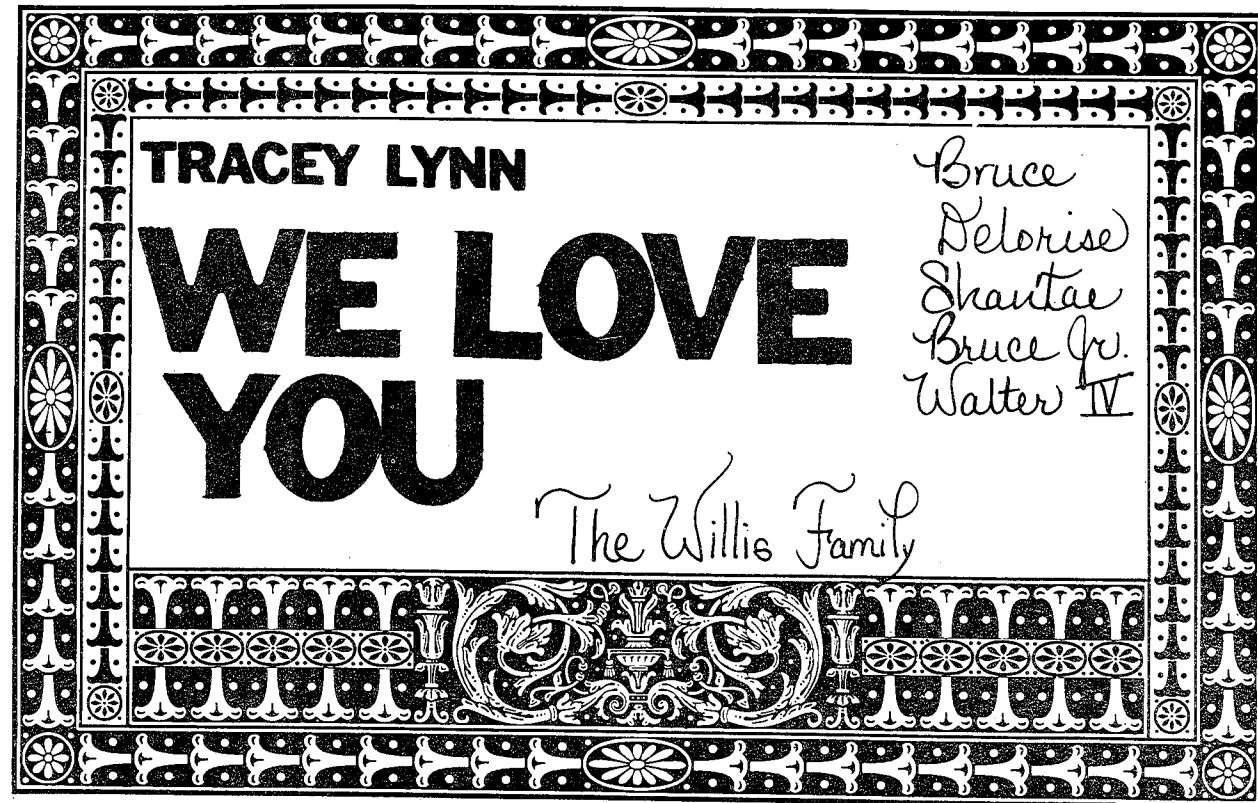 TRACEY LYNN
WE LOVE
YOU
Bruce
Delorise
Shantae
Bruce Jr.
Walter IV
The Willis Family